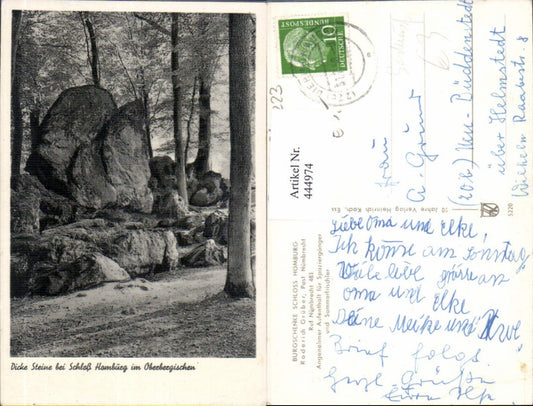 Dicke Steine bei Schloß Homburg im Oberbergischen
10
DEUTSCHE BUNDESPOST
223
Artikel Nr.
444974
BURGSCHENKE SCHLOSS HOMBURG
Roderich Grüber, Post Nümbrecht
Ruf Nümbrecht 485
Angenehmer Aufenthalt für Spaziergänger
und Sommerfrischler
50 Jahre Verlag Heinrich Koch, Ess
5220
Frau
A. Grund
(20b) Neu-Büddenstedt
über Helmstedt
Wilhelm Raabestr. 8
Liebe Oma und Elke,
Ich komme am Sonntag
Viele liebe grüße an
Oma und Elke
Deine Meike und Uwe
Brief folgt
Herzl. Grüße
Eure